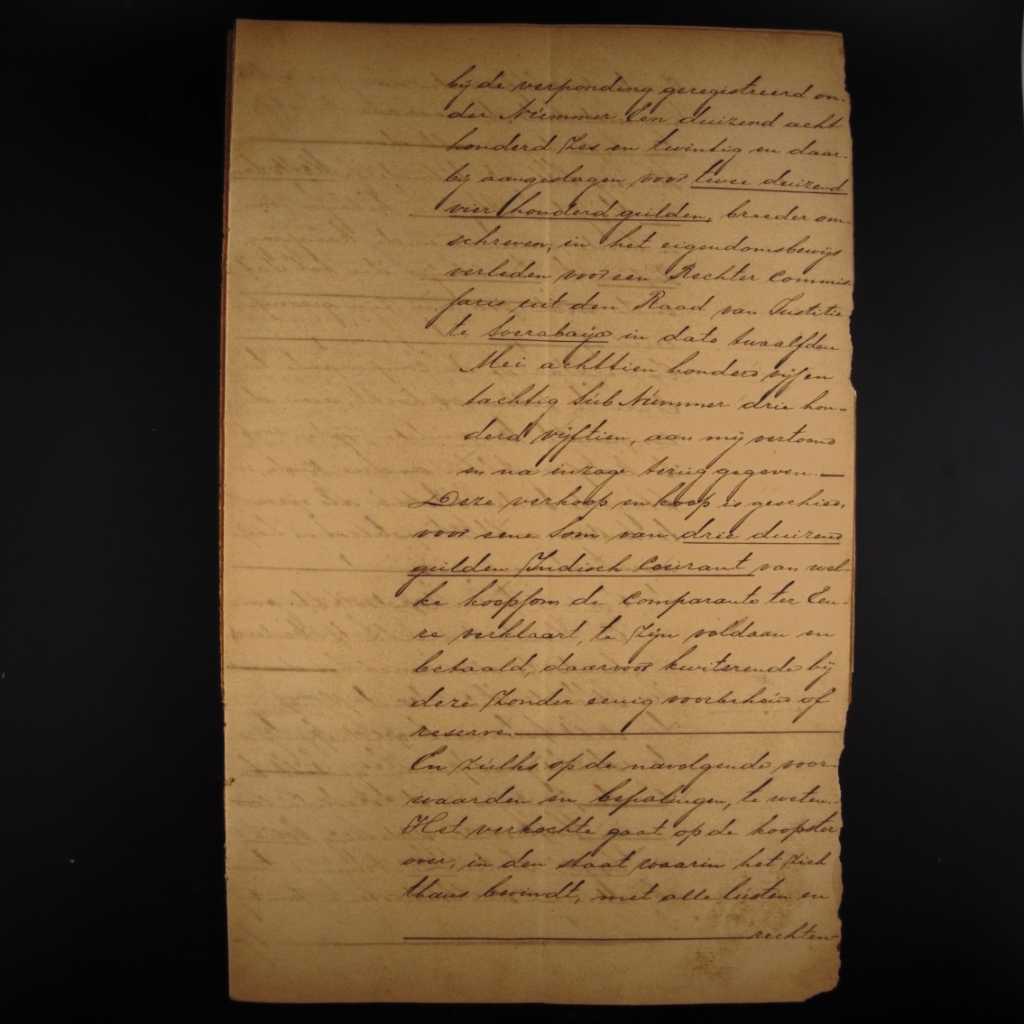 bij de verponding geregistreerd on-
der Nummer Een duizend acht
honderd Zes en twintig en daar-
bij aangeslagen voor twee duizend
vier honderd gulden, breeder om-
schreven, in het eigendomsbewijs
verleden voor een Rechter Commis-
saris uit den Raad van Justitie
te Soerabaija in dato twaalfden
Mei achttien honderd vijf en
tachtig Sub Nummer drie hon-
derd vijftien, aan mij vertoond
en na inzage terug gegeven.—
Deze verkoop en koop is geschied,
voor eene Som van drie duizend
gulden Indisch Courant van wel-
ke koopsom de comparante ter Een-
re verklaart, te Zijn voldaan en
betaald, daarvoor kwiterende bij
deze Zonder eenig voorbehoud of
reserve.—
En Zulks op de navolgende voor-
waarden en bepalingen, te weten.
Het verkochte gaat op de koopster
over, in den staat waarin het Zich
thans bevindt, met alle lusten en
rechten